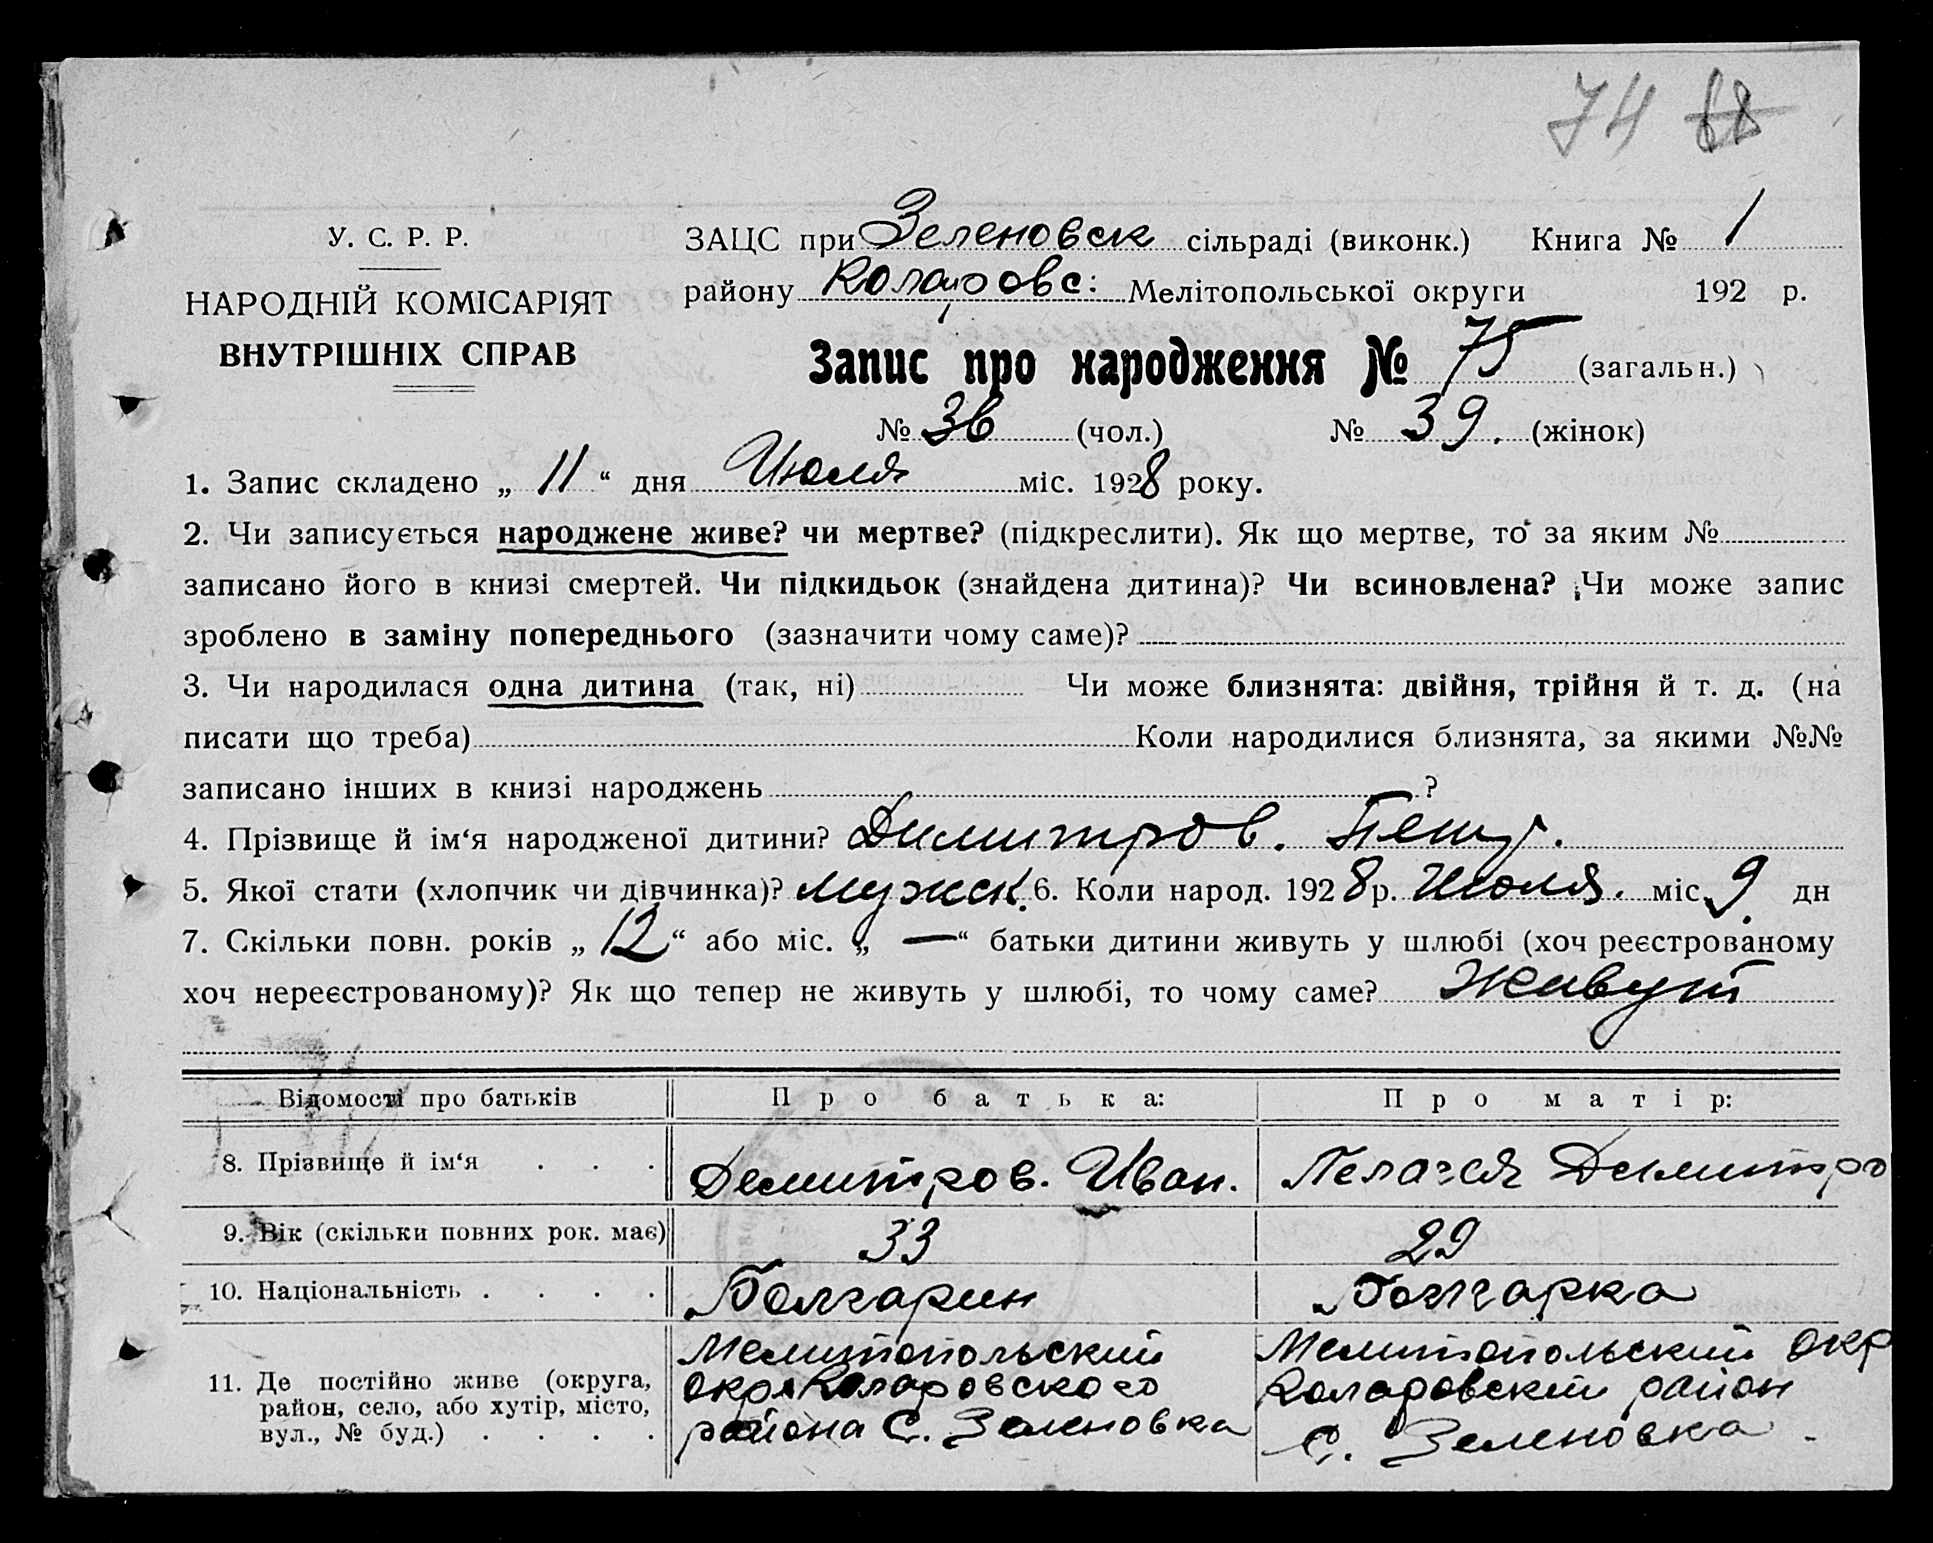 74 68
У. С. Р. Р.
НАРОДНІЙ КОМІСАРІЯТ
ВНУТРІШНІХ СПРАВ
ЗАЦС при Зеленовск сільраді (виконк.) Книга № 1
району Коларовс: Мелітопольської округи 192 р.
Запис про народження № 75 (загальн.)
№ 36 (чол.) № 39. (жінок)
1. Запис складено „ 11 “ дня Июля міс. 1928 року.
2. Чи записується народжене живе? чи мертве? (підкреслити). Як що мертве, то за яким №
записано його в книзі смертей. Чи підкидьок (знайдена дитина)? Чи всиновлена? Чи може запис
зроблено в заміну попереднього (зазначити чому саме)?
3. Чи народилася одна дитина (так, ні) Чи може близнята: двійня, трійня й т. д. (на
писати що треба) Коли народилися близнята, за якими №№
записано інших в книзі народжень ?
4. Прізвище й ім‘я народженої дитини? Димитров. Петр.
5. Якої стати (хлопчик чи дівчинка)? Мужск. 6. Коли народ. 1928 р. Июля. міс. 9 дн
7. Скільки повн. років „ 12 “ або міс. „ — “ батьки дитини живуть у шлюбі (хоч реєстрованому
хоч нереєстрованому)? Як що тепер не живуть у шлюбі, то чому саме? Живут
Відомості про батьків Про батька: Про матір:
8. Прізвище й ім‘я . . . Димитров. Иван. Пелагея Димитро
9. Вік (скільки повних рок. має) 33 29
10. Національність . . . . Болгарин Болгарка
11. Де постійно живе (округа, район, село, або хутір, місто, вул., № буд.) . . . .
Мелитопольский
окр. Коларовского
района С. Зеленовка
Мелитопольский окр
Коларовский район
С. Зеленовка